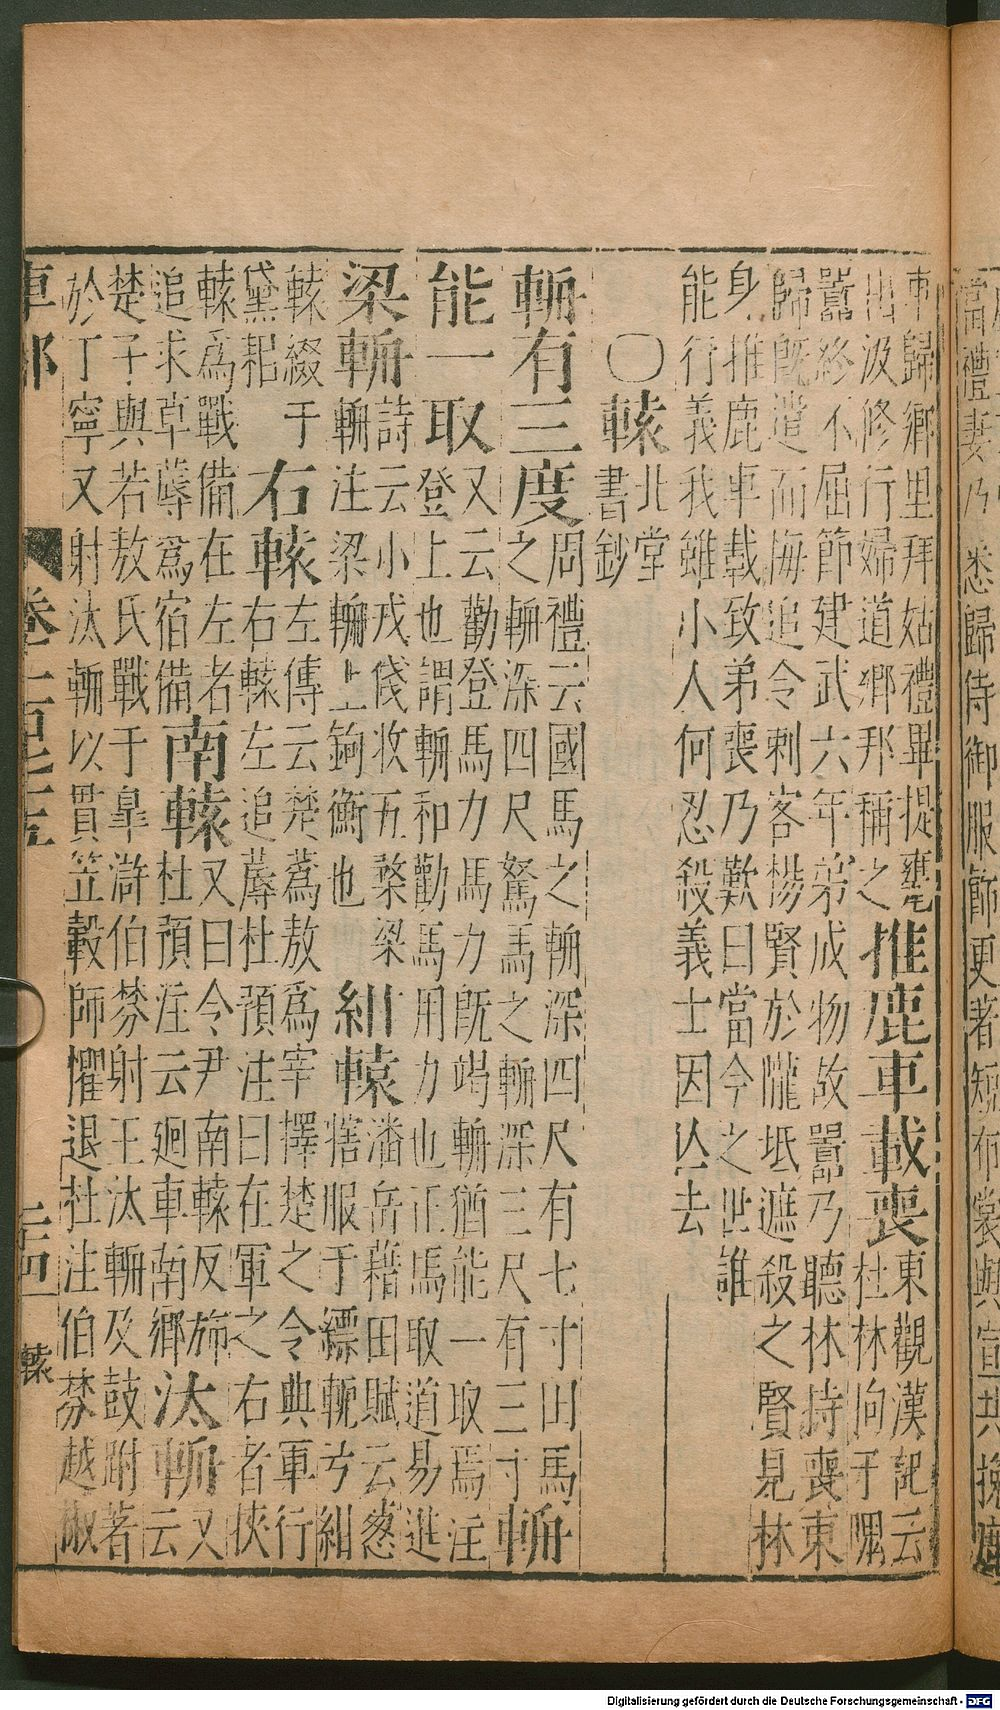 當禮妻乃悉歸侍御服飾更著短布裳與宣共挽鹿
車歸鄉里拜姑禮畢提甕
出汲修行婦道鄉邦稱之
推鹿車載喪
東觀漢記云
杜林向于隗
囂終不屈節建武六年弟成物故囂乃聽林持喪東
歸既遣而悔追令刺客楊賢於隴坻遮殺之賢見林
身推鹿車載致弟喪乃歎曰當今之世誰
能行義我雖小人何忍殺義士因亾去
〇轅
北堂
書鈔
輈有三度
周禮云國馬之輈深四尺有七寸田馬
之輈深四尺駑馬之輈深三尺有三寸
輈
能一取
又云勸登馬力馬力既竭輈猶能一取焉注
登上也謂輈和勸馬用力也正馬取道易進
梁輈
詩云小戎俴收五楘梁
輈注梁輈上鉤衡也
紺轅
潘岳藉田賦云葱
犗服于縹軶兮紺
轅綴于
黛耜
右轅
左傳云楚蒍敖爲宰擇楚之令典軍行
右轅左追蓐杜預注曰在軍之右者挾
轅爲戰備在左者
追求草蓐爲宿備
南轅
又曰令尹南轅反旆
杜預注云迴車南鄉
汰輈
又
云
楚子與若敖氏戰于皐滸伯棼射王汰輈及鼓跗著
於丁寧又射汰輈以貫笠轂師懼退杜注伯棼越椒
車部 卷一百七十五 二十四 轅
Digitalisierung gefördert durch die Deutsche Forschungsgemeinschaft - DFG